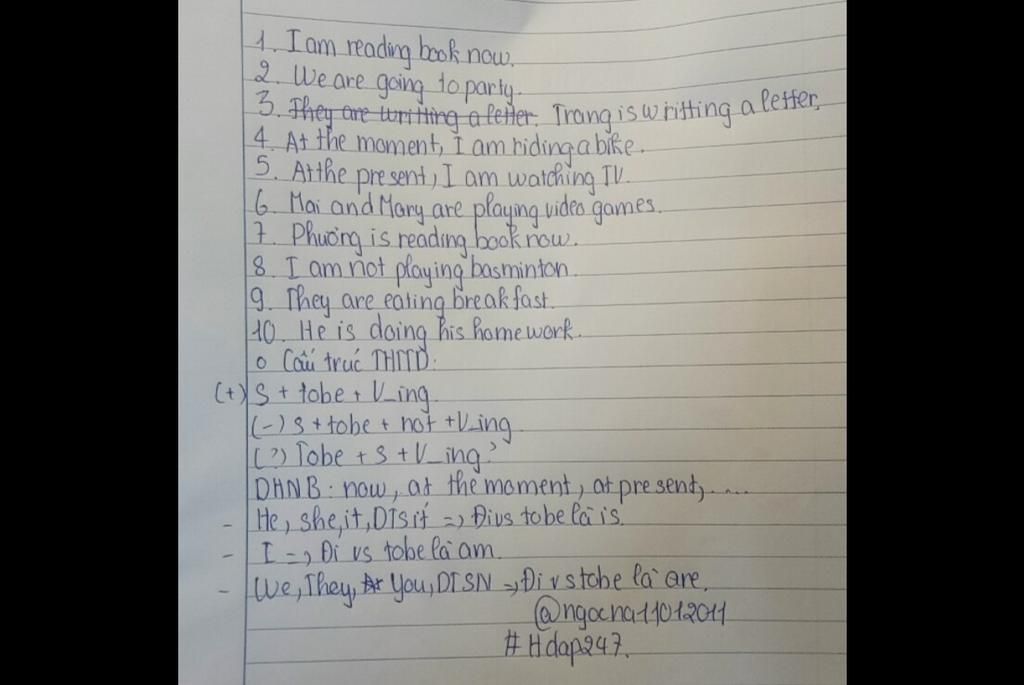 1. I am reading book now.
2. We are going to party.
3. They are writting a letter. Trang is writting a letter.
4. At the moment, I am riding a bike.
5. At the present, I am watching TV.
6. Mai and Mary are playing video games.
7. Phương is reading book now.
8. I am not playing basminton.
9. They are eating breakfast.
10. He is doing his homework.
o Cấu trúc THTTD:
(+) S + tobe + V_ing
(-) S + tobe + not + V_ing
(?) Tobe + S + V_ing?
DHNB: now, at the moment, at present, ....
- He, she, it, DTSít => Đi vs tobe là is.
- I => Đi vs tobe là am.
- We, They, You, DTSN => Đi vs tobe là are.
@ngocna11012011
#Hdap247.